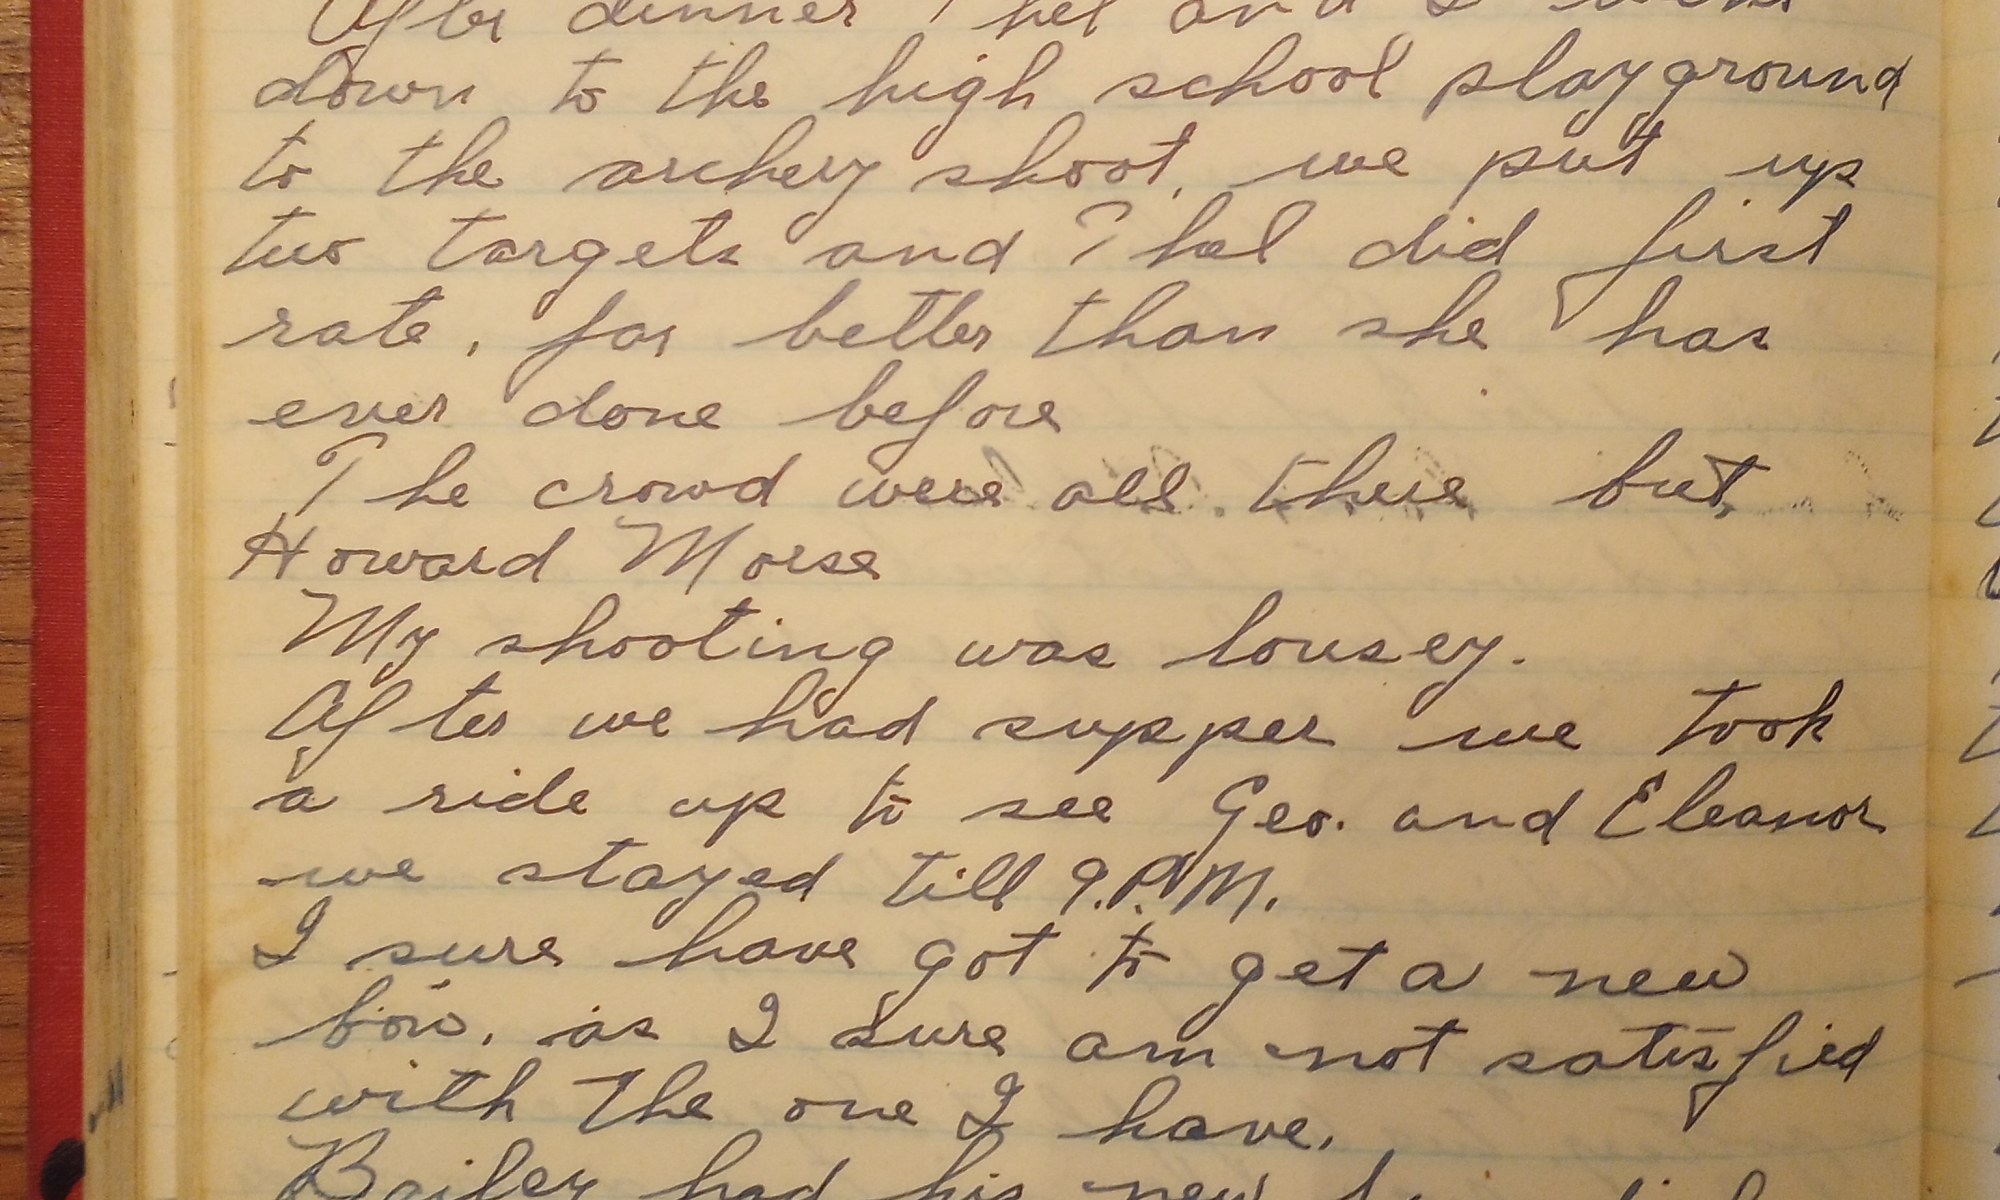 After dinner Thel and I went
down to the high school playground
to the archery shoot, we put up
two targets and Thel did first
rate, far better than she has
ever done before
The crowd were all there but,
Howard Morse
My shooting was lousey.
After we had supper we took
a ride up to see Geo. and Eleanor
we stayed till 9.P.M.
I sure have got to get a new
bow, as I sure am not satisfied
with the one I have.
Bailey had his new